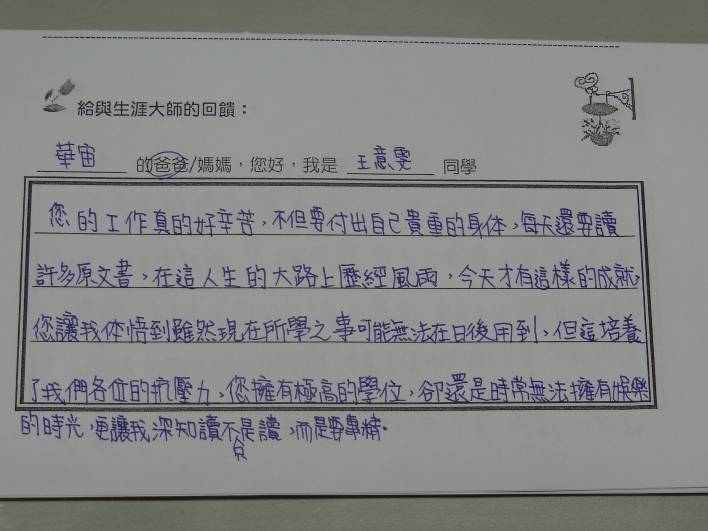 給與生涯大師的回饋：
華宙 的爸爸/媽媽，您好，我是 王意雯 同學
您的工作真的好辛苦，不但要付出自己貴重的身体，每天還要讀
許多原文書，在這人生的大路上歷經風雨，今天才有這樣的成就，
您讓我体悟到雖然現在所學之事可能無法在日後用到，但這培養
了我們各位的抗壓力，您擁有極高的學位，卻還是時常無法擁有娛樂
的時光，更讓我深知讀不是讀，而是要專精。